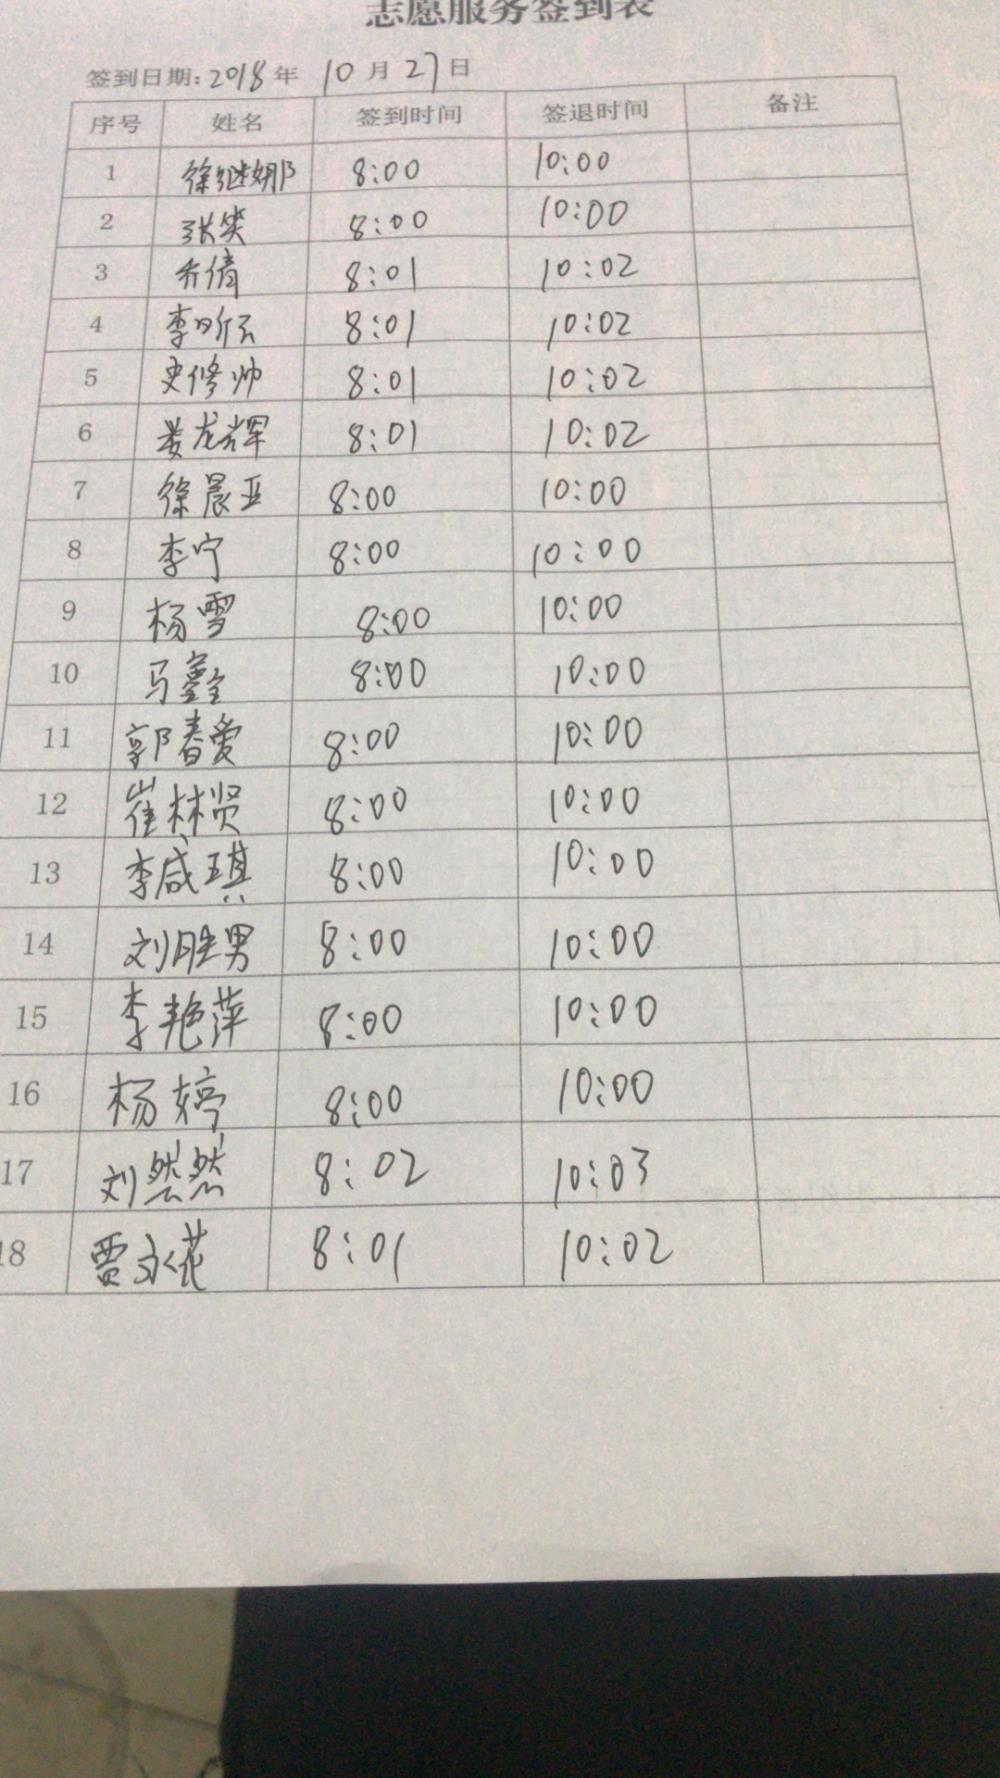 志愿服务签到表
签到日期：2018年 10月27日
序号 姓名 签到时间 签退时间 备注
1 徐继娜 8:00 10:00
2 张笑 8:00 10:00
3 乔倩 8:01 10:02
4 李昕 8:01 10:02
5 史修帅 8:01 10:02
6 龙辉 8:01 10:02
7 徐晨亚 8:00 10:00
8 李宁 8:00 10:00
9 杨雪 8:00 10:00
10 马 8:00 10:00
11 郭春爱 8:00 10:00
12 崔林贤 8:00 10:00
13 李咸琪 8:00 10:00
14 刘胜男 8:00 10:00
15 李艳萍 8:00 10:00
16 杨婷 8:00 10:00
17 刘然然 8:02 10:03
18 贾永花 8:01 10:02